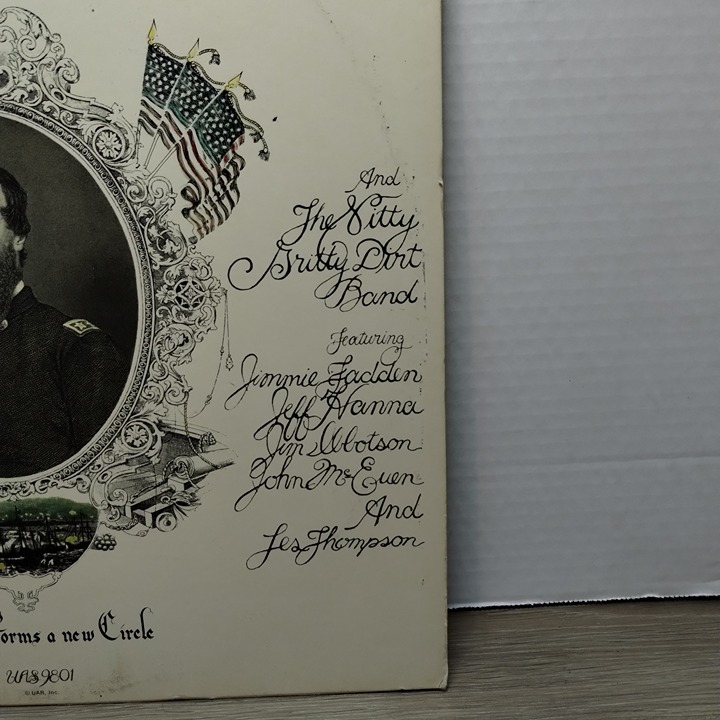 And
The Nitty
Gritty Dirt
Band
Featuring
Jimmie Fadden
Jeff Hanna
Jim Ibbotson
John McEuen
And
Les Thompson
forms a new Circle
UAS 9801
© UAR, Inc.